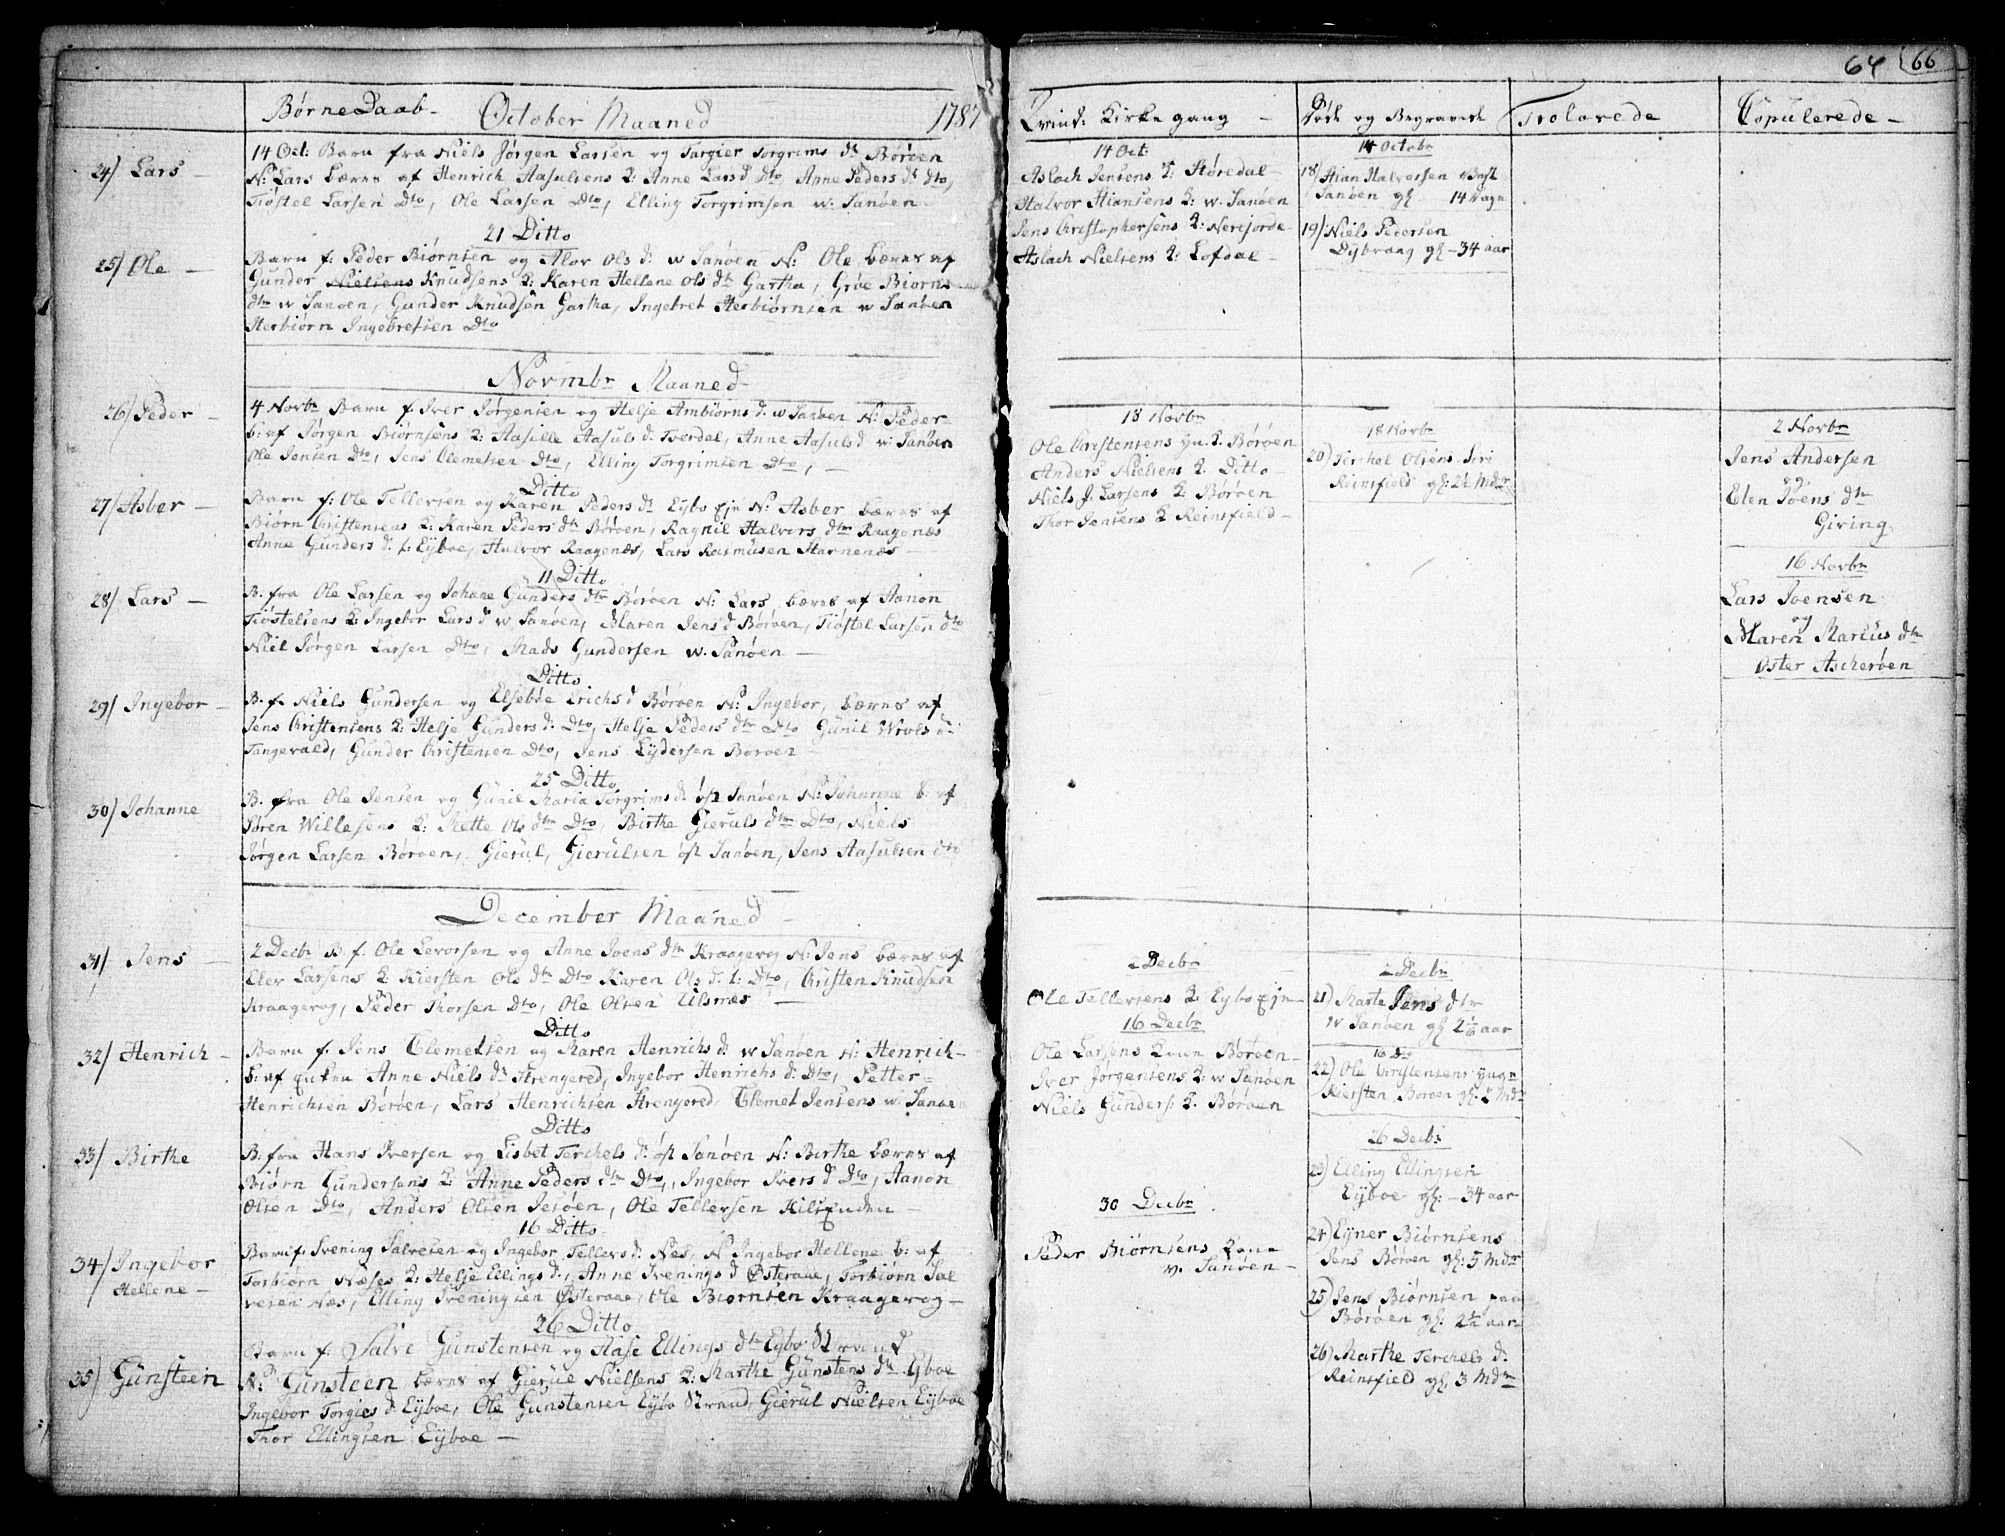 64 66
Børne Daab - October Maaned 1787
24/ Lars -
14 Oct: Barn fra Niels Jørgen Larsen og Targier Torgrims dr Børøen
N: Lars bæres af Henrich Aasulsens K: Anne Lars d Dto, Anne Peders dr dto,
Tiøstel Larsen Dto, Ole Larsen Dto, Elling Torgrimsen w: Sanøen
21 Ditto
25/ Ole -
Barn f: Peder Biørnsen og Alov Ols d: w Sanøen N: Ole bæres af
Gunder Nielsens Knudsens K: Karen Hellene Ols dr Gartha, Gröe Biørns
dtr w Sanøen, Gunder Knudsen Gartha, Ingebret Herbiørnsen w Sanøen
Herbiørn Ingebretsen Dto
Novmbr Maaned
26/ Peder -
4 Novbr Barn f. Iver Jørgensen og Helje Ambiørns d. w Sanøen N: Peder
b: af Jørgen Biørnsens K: Aasille Aasuls d: Tverdal, Anne Aasuls d w: Sanøen
Ole Jensen Dto, Jens Clemetsen Dto, Elling Torgrimsen Dto, -
Ditto
27/ Asber -
Barn f: Ole Tellevsen og Karen Peders dr Eybo Eje N: Asber bæres af
Biørn Christensens K: Karen Peders dtr Børøen, Ragnil Halvors dtr Raagenæs
Anne Gunders d. Eyboe, Halvor Raagenæs, Lars Rasmusen Narnenæs -
11 Ditto
28/ Lars -
B. fra Ole Larsen og Johane Gunders dtr Børøen N: Lars, bæres af Aanon
Tiøstelsens K: Ingebor Lars d w. Sanøen, Maren Jens d Børøen, Tiøstel Larsen dto
Niel Jørgen Larsen Dto, Mads Gundersen w. Sanøen -
Ditto
29/ Ingebor -
B. f. Niels Gundersen og Elsebøe Erichs d Børøen N: Ingebor, bæres af
Jens Christensens K: Helje Gunders d: Dto, Helje Peders dtr Dto Gunil Wrols d
Tangevald, Gunder Christensen Dto, Jens Lydersen Børøen
25 Ditto
30/ Johanne
B. fra Ole Jensen og Gunil Maria Torgrims d: øst Sanøen N: Johanne b. af
Søren Willesens K: Mette Ols dtr Dto, Birthe Gieruls dtr Dto, Niels
Jørgen Larsen Børøen, Gierul, Gierulsen øst Sanøen, Jens Aasulsen dto
December Maaned -
31/ Jens -
2 Decbr B f. Ole Levorsen og Anne Joens dtr Kraagevog N: Jens bæres af
Elev Larsens K: Kiersten Ols dtr Dto Karen Ols d. Dto, Christen Knudsen
Kraagevog, Peder Thorsen Dto, Ole Olsen Eilsnæs -
Ditto
32/ Henrich -
Barn f. Jens Clemetsen og Maren Henrichs d: w Sanøen N: Henrich -
b: af Anne Niels dr Strengered, Ingebor Henrichs d. Dto, Petter -
Henrichsen Børøen, Lars Henrichsen Strengered, Clemet Jensens w: Sanøen
Ditto
33/ Birthe
B. fra Hans Iversen og Lisbet Terchels d: øst Sanøen N: Birthe bæres af
Biørn Gundersens K: Anne Peders dtr Dto, Ingebor Ivers d Dto, Aanon
Olsen Dto, Anders Olsen Jesøen, Ole Tellevsen Kilsenden -
16 Ditto
34/ Ingebor
Hellene -
Barn f. Svening Salvesen og Ingebor Tellevs d: Nes, N Ingebor Hellene b: af
Torbiørn Næses K: Helje Ellings d:, Anne Svenings d Østeraae, Torbiørn Sal
vesen Næs, Elling Sveningsen Østeraae, Ole Biørnsen Kraagevog -
26 Ditto
35/ Gunsteen
Barn f. Salve Gunstensen og Aase Ellings dtr Eybo Strand
N: Gunsteen bæres af Gierul Nielsens K: Marthe Gunstens dtr Eyboe
Ingebor Torgies d. Eyboe, Ole Gunstensen Eybo Strand, Gierul Nielsen Eyboe
Thor Ellingsen Eyboe -
Qvind: Kirke gang -
14 Oct:
Aslach Jensens K: Støredal -
Halvor Stiansens K: w. Sanøen
Jens Christophersens K: Neresjorde
Aslach Nielsens K: Lofdal -
18 Novbr
Ole Christensens yn. K. Børøen
Anders Nielsens K. Ditto -
Niels J. Larsens K: Børøen
Thor Jensens K Reinsfield -
2 Decbr
Ole Tellevsens K: Eybo Eje -
16 Decbr
Ole Larsens Kone Børøen -
Iver Jørgensens K: w Sanøen
Niels Gunders: K. Børøen
30 Decbr
Peder Biørnsens Kone
v. Sanøen -
Døde og Begravede
14 Octobr
18/ Stian Halvorsen Vest
Sanøen gl. 14 Dage
19/ Niels Pedersen
Dybvaag gl - 34 aar
18 Novbr
20) Terchel Olsens Siri
Reinsfield gl: 2½ Mdr
2 Decbr
21) Marte Jens dtr
W Sanøen gl 2 aar
16 Do
22) Ole Christensens yngr
Kiersten Børøen gl: 2 Mdr
26 Decbr
23) Elling Ellingsen
Eyboe gl: - 34 aar
24) Ejner Biørnsens
Jens Børøen gl: 5 Mdr
25) Jens Biørnsen paa
Børøen gl: 2½ aar
26) Marthe Terchels d.
Reinsfield gl. 3 Mdr
Trolovede
Copulerede -
2 Novbr
Jens Andersen
og
Elen Joens dtr
Giving
16 Novbr
Lars Joensen
og
Maren Marcus dtr
Oster Ascherøen